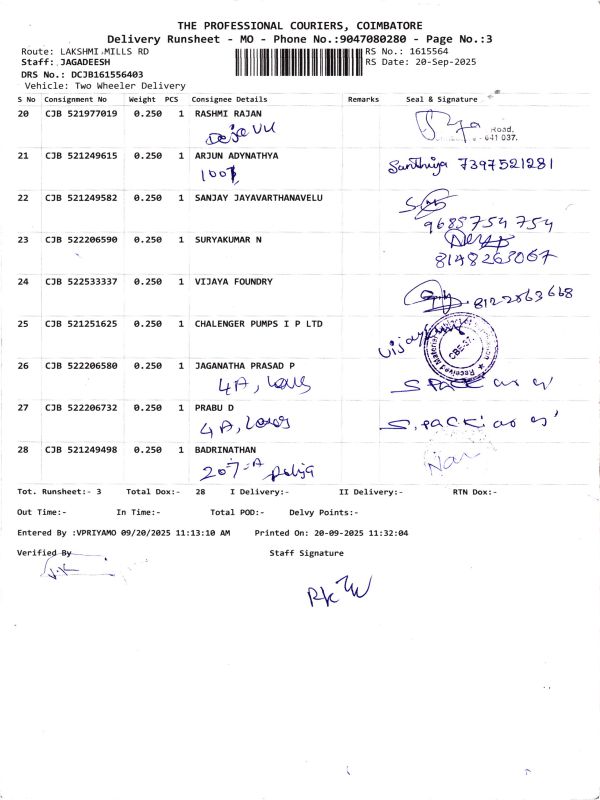 THE PROFESSIONAL COURIERS, COIMBATORE
Delivery Runsheet - MO - Phone No.:9047080280 - Page No.:3
Route: LAKSHMI MILLS RD RS No.: 1615564
Staff: JAGADEESH RS Date: 20-Sep-2025
DRS No.: DCJB161556403
Vehicle: Two Wheeler Delivery
S No Consignment No Weight PCS Consignee Details Remarks Seal & Signature
20 CJB 521977019 0.250 1 RASHMI RAJAN
Deja VU Road.
641 037.
21 CJB 521249615 0.250 1 ARJUN ADYNATHYA
Santhiya 7397521281
22 CJB 521249582 0.250 1 SANJAY JAYAVARTHANAVELU
9685754754
23 CJB 522206590 0.250 1 SURYAKUMAR N
8148263067
24 CJB 522533337 0.250 1 VIJAYA FOUNDRY
25 CJB 521251625 0.250 1 CHALENGER PUMPS I P LTD
Vijay
26 CJB 522206580 0.250 1 JAGANATHA PRASAD P
4A,
27 CJB 522206732 0.250 1 PRABU D
4A,
28 CJB 521249498 0.250 1 BADRINATHAN
207-A
Tot. Runsheet:- 3 Total Dox:- 28 I Delivery:- II Delivery:- RTN Dox:-
Out Time:- In Time:- Total POD:- Delvy Points:-
Entered By :VPRIYAMO 09/20/2025 11:13:10 AM Printed On: 20-09-2025 11:32:04
Verified By Staff Signature